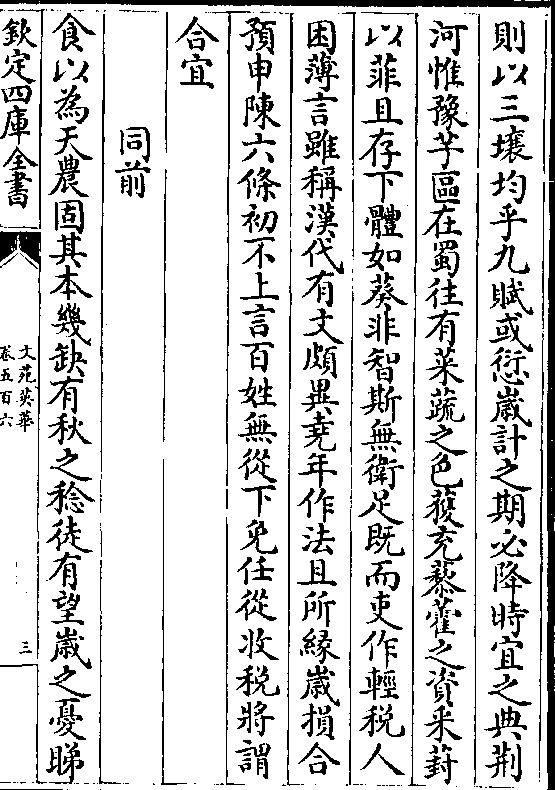 則以三壤均乎九賦或愆嵗計之期必降時宜之典荆
河惟豫芋區在蜀往有菜蔬之色䕶充藜藿之資采葑
以菲且存下體如葵非智斯無衛足既而吏作輕税人
困薄言雖稱漢代有文頗異堯年作法且所縁嵗損合
預申陳六條初不上言百姓無從下免任從收税將謂
合宜
同前
食以為天農固其本幾缺有秋之稔徒有望嵗之憂睇
欽定四庫全書
文苑英華
卷五百六
三